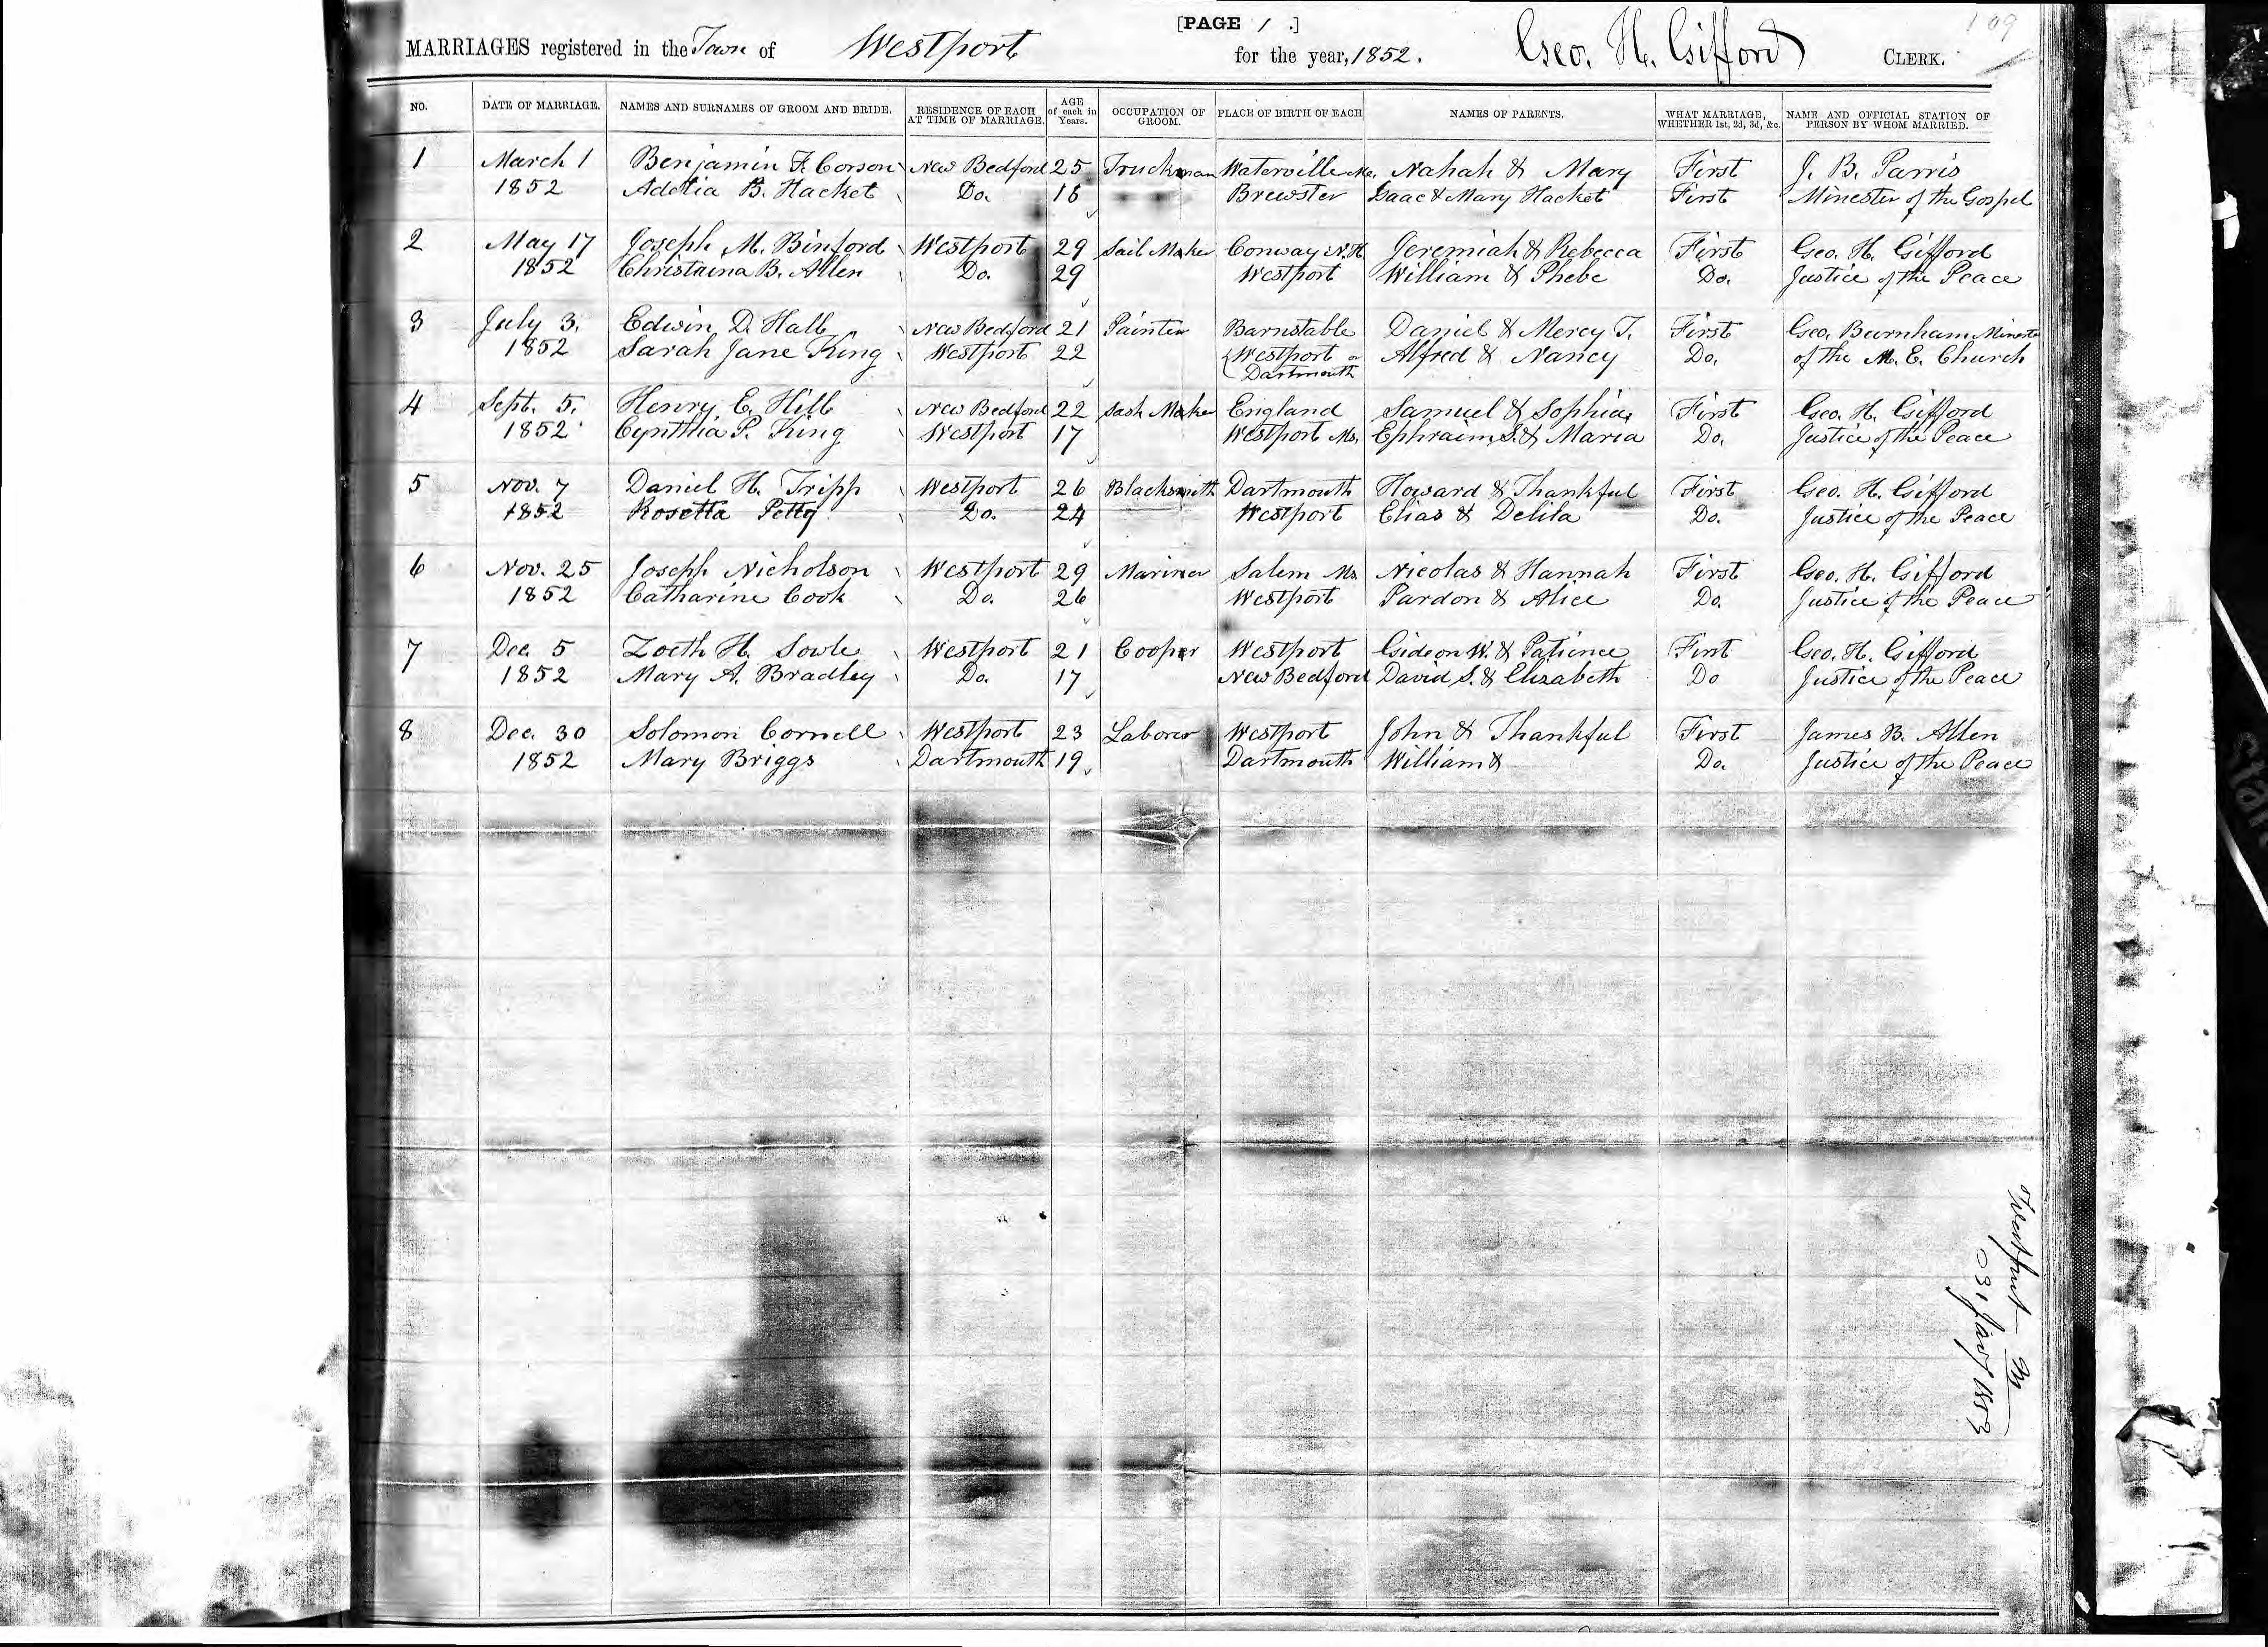 [PAGE 1.]
109
MARRIAGES registered in the Town of Westport for the year, 1852. Geo. H. Gifford CLERK.
NO. DATE OF MARRIAGE. NAMES AND SURNAMES OF GROOM AND BRIDE. RESIDENCE OF EACH AT TIME OF MARRIAGE. AGE of each in Years. OCCUPATION OF GROOM. PLACE OF BIRTH OF EACH NAMES OF PARENTS. WHAT MARRIAGE, WHETHER 1st, 2d, 3d, &c. NAME AND OFFICIAL STATION OF PERSON BY WHOM MARRIED.
1 March 1 Benjamin F. Corson New Bedford 25 Truckman Waterville Me. Nahah & Mary First J. B. Parris
1852 Adelia B. Hacket Do. 18 Brewster Isaac & Mary Hacket First Minester of the Gospel
2 May 17 Joseph M. Binford Westport 29 Sail Maker Conway N.H. Jeremiah & Rebecca First Geo. H. Gifford
1852 Christaina B. Allen Do. 29 Westport William & Phebe Do. Justice of the Peace
3 July 3. Edwin D. Hall New Bedford 21 Painter Barnstable Daniel & Mercy T. First Geo. Burnham, Ministe
1852 Sarah Jane King Westport 22 Westport or Alfred & Nancy Do. of the M. E. Church
Dartmouth
4 Sept. 5. Henry E. Hill New Bedford 22 Sash Maker England Samuel & Sophia First Geo. H. Gifford
1852 Cynthia P. King Westport 17 Westport Ms. Ephraim S. & Maria Do. Justice of the Peace
5 Nov. 7 Daniel H. Tripp Westport 26 Blacksmith Dartmouth Howard & Thankful First Geo. H. Gifford
1852 Rosetta Petty Do. 24 Westport Elias & Delila Do. Justice of the Peace
6 Nov. 25 Joseph Nicholson Westport 29 Mariner Salem Ms. Nicolas & Hannah First Geo. H. Gifford
1852 Catharine Cook Do. 26 Westport Pardon & Alice Do. Justice of the Peace
7 Dec. 5 Zoeth H. Sowle Westport 21 Cooper Westport Gideon W. & Patience First Geo. H. Gifford
1852 Mary A. Bradley Do. 17 New Bedford David S. & Elizabeth Do Justice of the Peace
8 Dec. 30 Solomon Cornell Westport 23 Laborer Westport John & Thankful First James B. Allen
1852 Mary Briggs Dartmouth 19 Dartmouth William & Do. Justice of the Peace